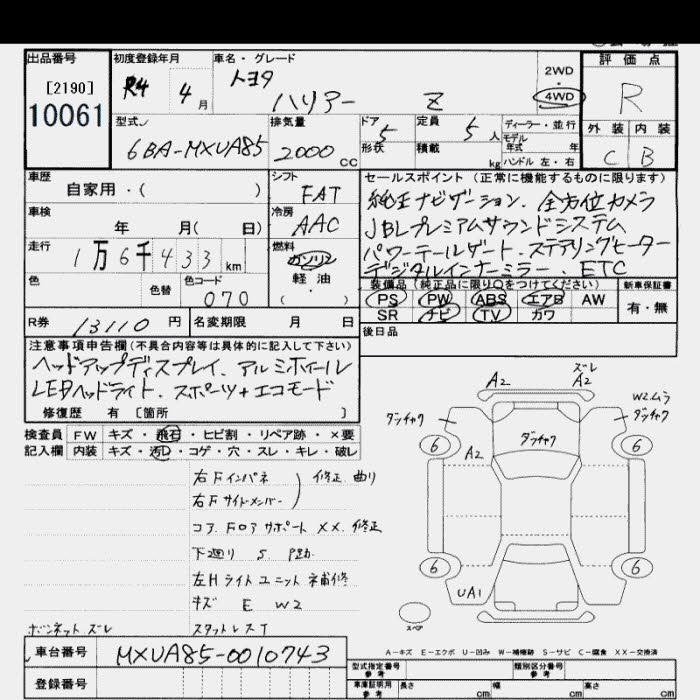 出品番号 初度登録年月 車名・グレード 評価点
[2190] R4 4月 トヨタ 2WD R
10061 ハリアー Z 4WD
型式 排気量 ドア 定員 ディーラー・並行 外装 内装
6BA-MXUA85 2000CC 5 5人 モデル年式 年 C B
形状 積載 kg ハンドル 左・右
車歴 シフト セールスポイント (正常に機能するものに限ります)
自家用・( ) FAT 純正ナビゲーション. 全方位カメラ
車検 冷房 JBLプレミアムサウンドシステム
年 月( 日) AAC パワーテールゲート. ステアリングヒーター
走行 燃料 デジタルインナーミラー. ETC
1万6千433km ガソリン
色 色替 色コード 軽油 装備品(純正品に限り○をつけてください) 新車保証書
070 ( ・ ) PS PW ABS エアB AW 有・無
R券 13110円 名変期限 月 日 SR ナビ TV カワ
後日品
注意事項申告欄(不具合内容等は具体的に記入して下さい)
ヘッドアップディスプレイ. アルミホイール
LEDヘッドライト. スポーツ+エコモード
修復歴 有 [箇所 ]
検査員 FW キズ・飛石・ヒビ割・リペア跡・×要
記入欄 内装 キズ・汚レ・コゲ・穴・スレ・キレ・破レ
右Fインパネ 修正 曲り
右Fサイドメンバー
コアFロアサポート XX. 修正
下廻り S
左Hライトユニット補修
キズ E W2
ボンネットズレ
A2 ズレ A2
ダッチャク W2ムラ ダッチャク
6 A2 ダッチャク 6
6 6
UA1
スペア
A-キズ E-エクボ U-凹み W-補修跡 S-サビ C-腐食 XX-交換済
車台番号 MXUA85-0010743
型式指定番号 参考 類別区分番号 参考
登録番号 車庫証明用 参考 長さ cm 幅 cm 高さ cm